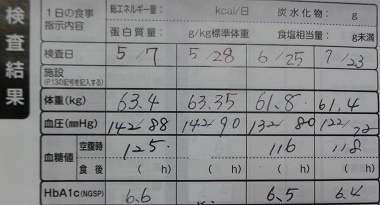 検査結果
1日の食事指示内容 総エネルギー量： kcal/日 炭水化物： g
蛋白質量： g/kg標準体重 食塩相当量： g未満
検査日 5/7 5/28 6/25 7/23
施設
(P.13の記号を記入する)
体重(kg) 63.4 63.35 61.8 61.4
血圧(mmHg) 142/88 142/90 132/80 122/72
血糖値 空腹時 125 116 118
食後 ( h) ( h) ( h) ( h)
HbA1c(NGSP) 6.6 6.5 6.4